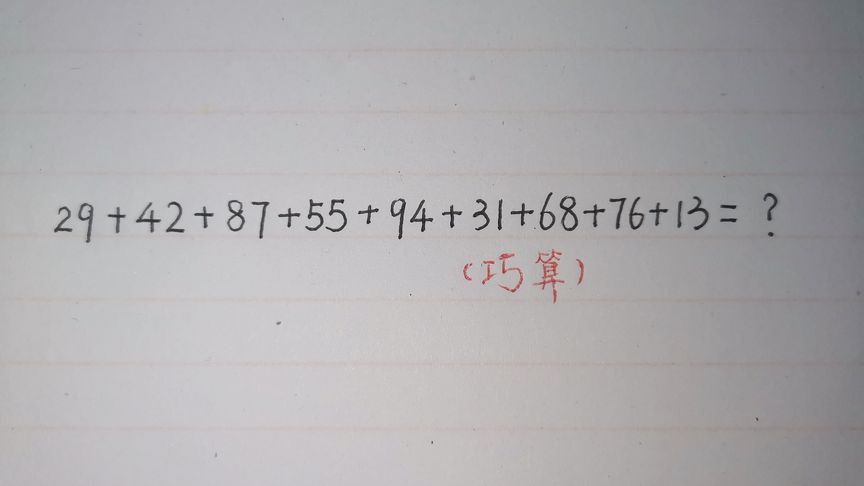 29+42+87+55+94+31+68+76+13=?
(巧算)